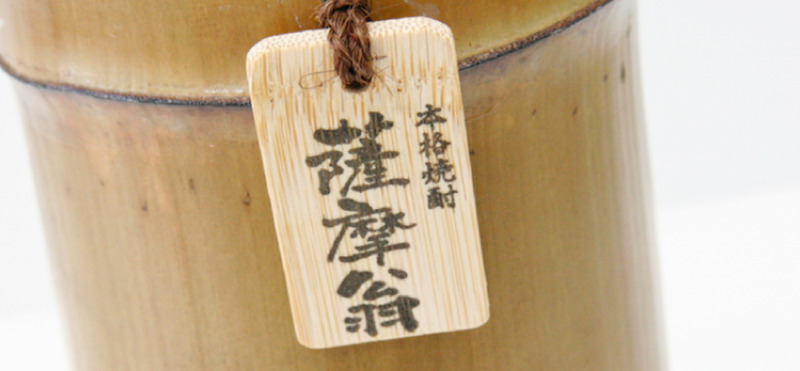 本格焼酎
薩摩翁